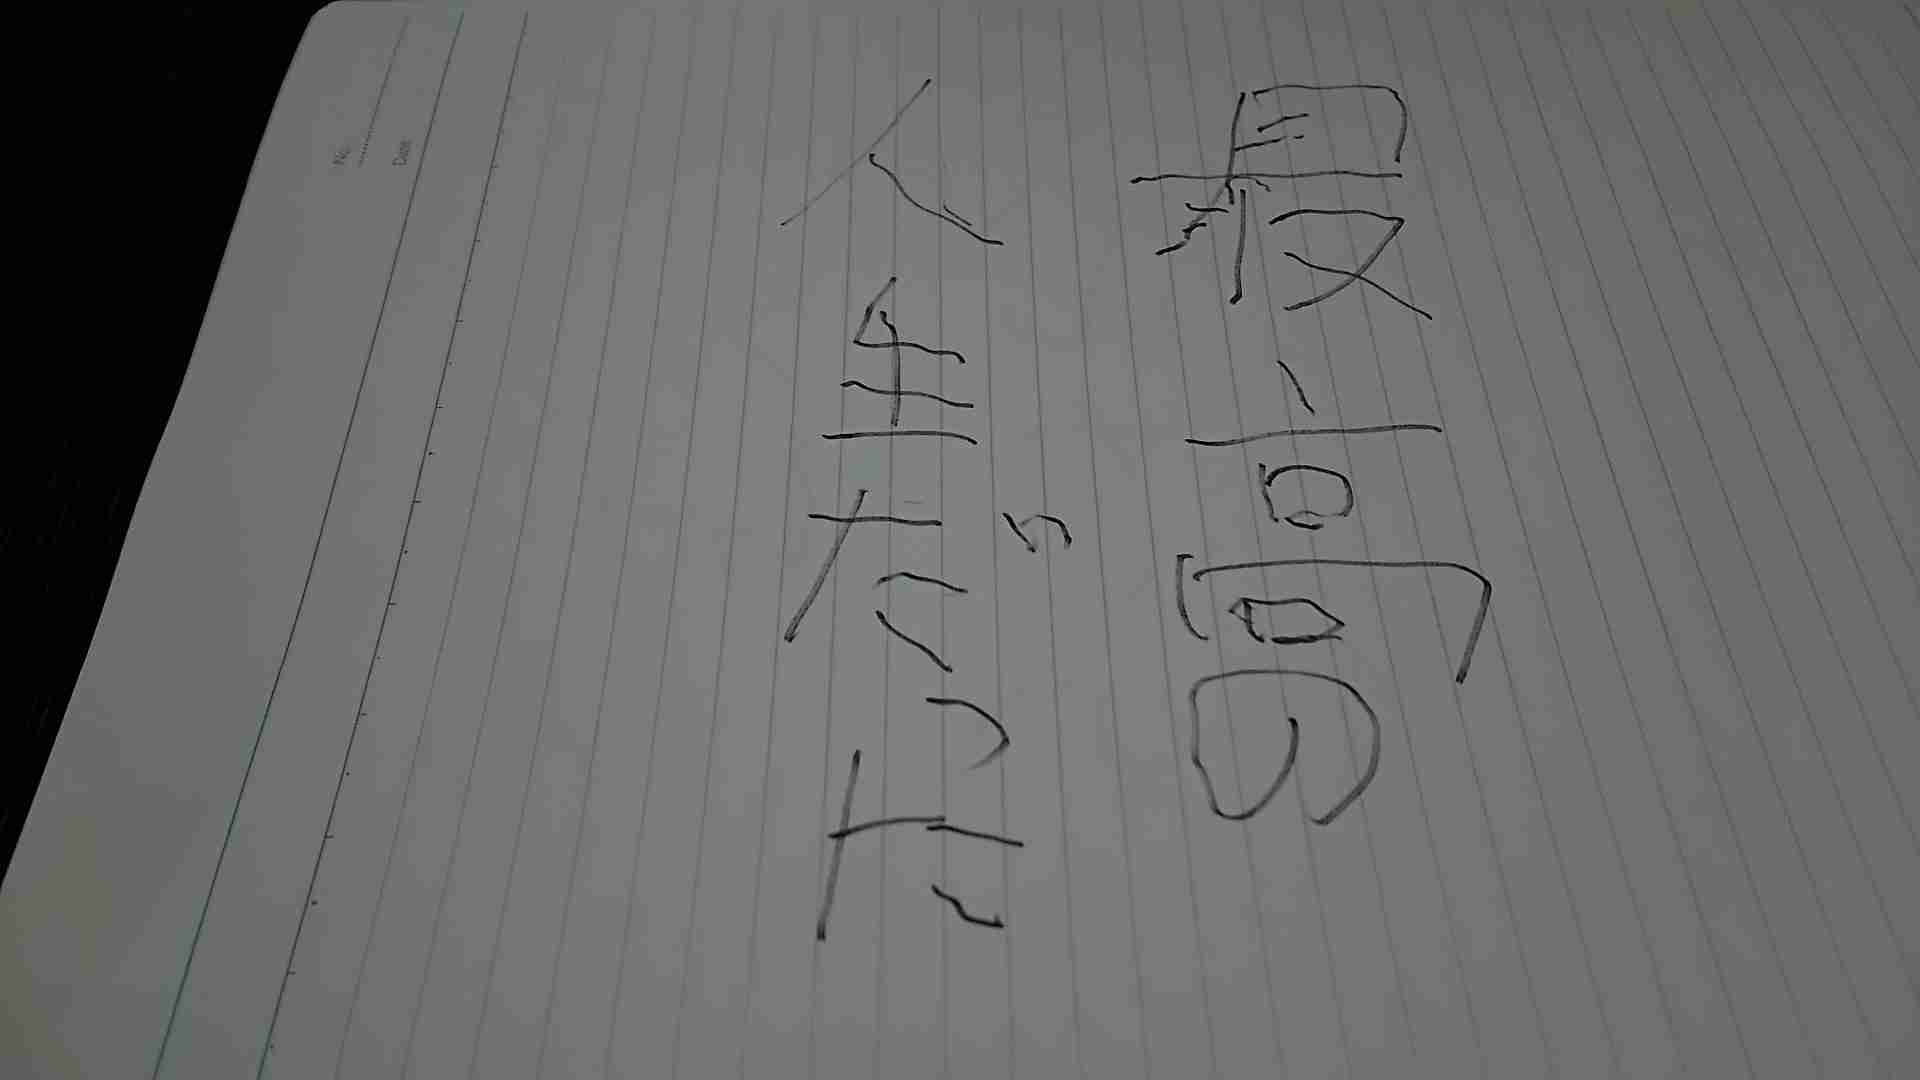 最高の
人生だった
No.
Date